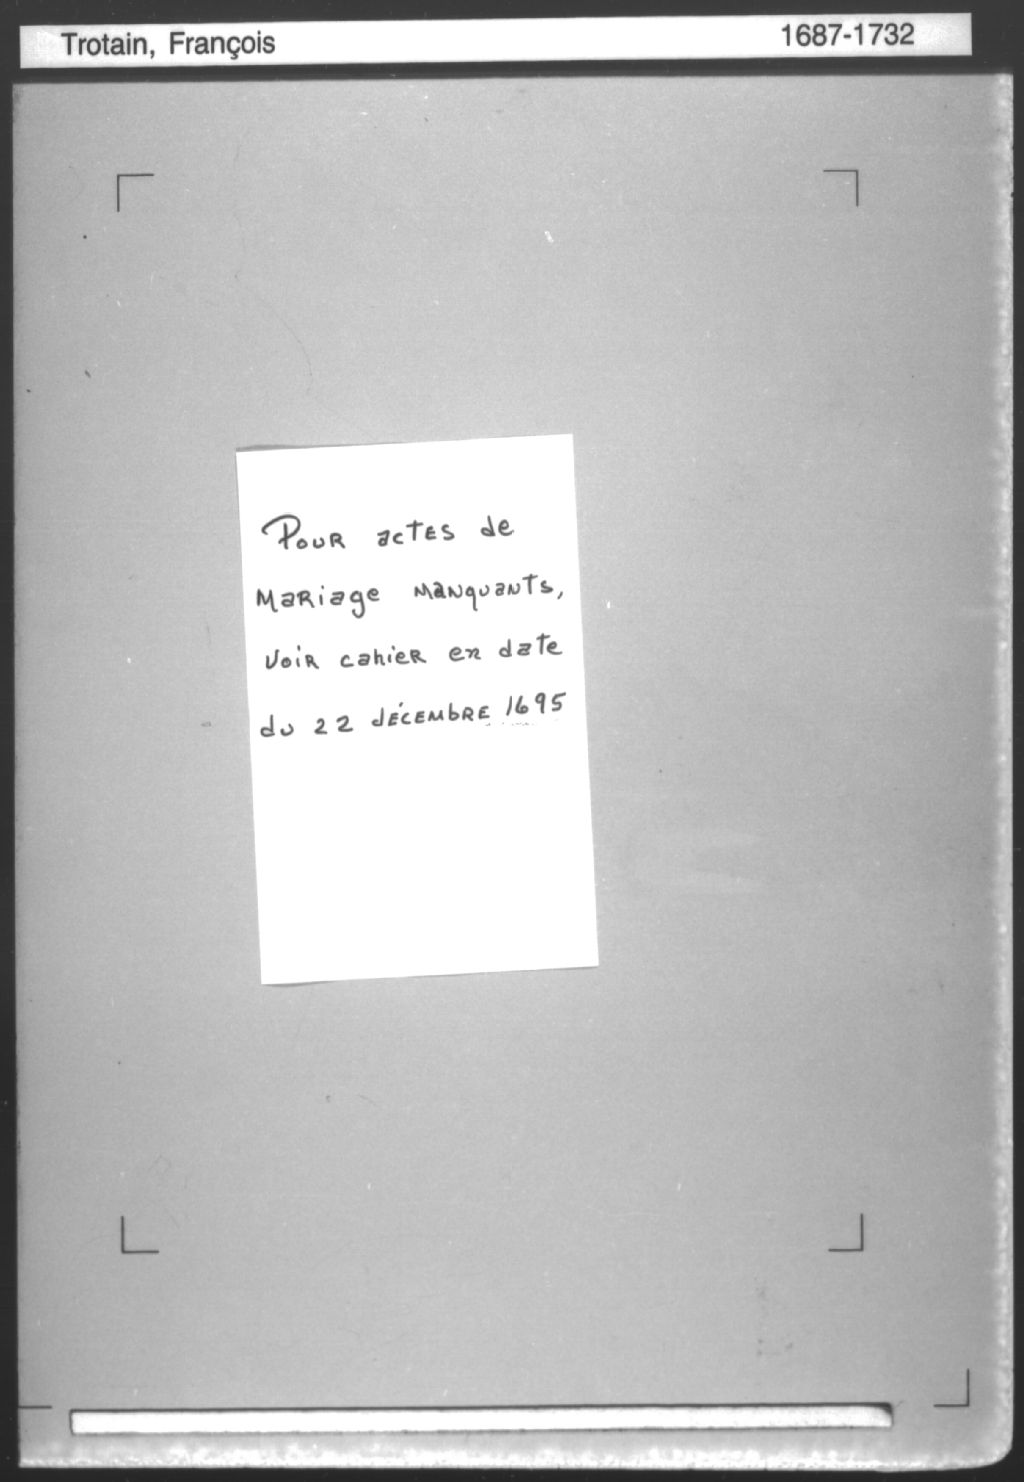 Trotain, François 1687-1732
Pour actes de
mariage manquants,
voir cahier en date
du 22 décembre 1695